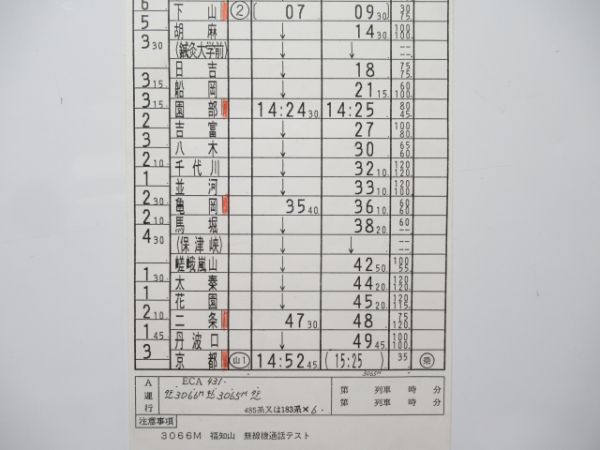 6 下山 ② ( 07 09 30 ) 30 75
5 胡麻 ↓ 14 30 100 100
3 30 (鍼灸大学前) ↓ ↓ -- --
日吉 ↓ 18 75 75
3 15 船岡 ↓ 21 15 60 100
3 15 園部 14:24 30 14:25 80 45
2 吉富 ↓ 27 100 80
3 八木 ↓ 30 65 60
2 10 千代川 ↓ 32 10 120 100
1 並河 ↓ 33 10 120 100
2 30 亀岡 35 40 36 10 60 60
2 10 馬堀 ↓ 38 20 -- --
4 30 (保津峡) ↓ ↓ -- --
嵯峨嵐山 ↓ 42 50 100 55
1 30 太秦 ↓ 44 20 120 120
1 花園 ↓ 45 20 120 115
2 10 二条 47 30 48 75 120
1 45 丹波口 ↓ 49 45 100 100
3 京都 山1 14:52 45 (15:25) 35
3065M
A運行
ECA 431.
3066M 3065M
485系又は183系×6.
第 列車 時 分
第 列車 時 分
注意事項
3066M 福知山 無線機通話テスト